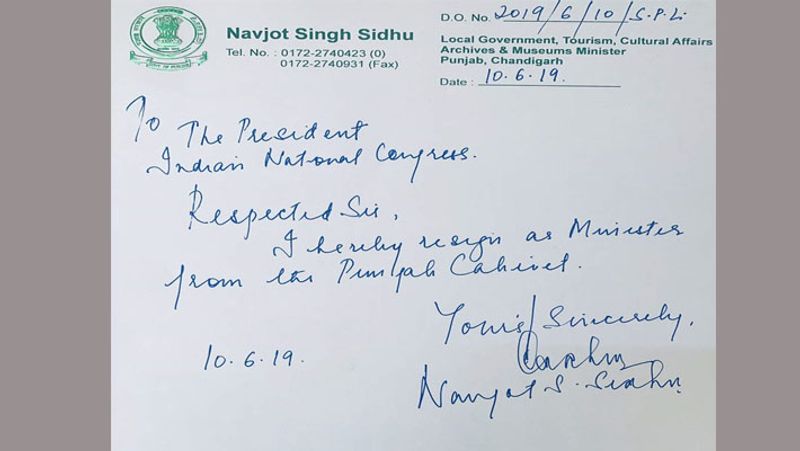 Navjot Singh Sidhu
Tel. No. : 0172-2740423 (0)
0172-2740931 (Fax)
D.O. No. 2019/6/10/S.P.Li
Local Government, Tourism, Cultural Affairs
Archives & Museums Minister
Punjab, Chandigarh
Date : 10.6.19.
To
The President
Indian National Congress.
Respected Sir,
I hereby resign as Minister
from the Punjab Cabinet.
Yours Sincerely,
10.6.19.
Navjot S. Sidhu